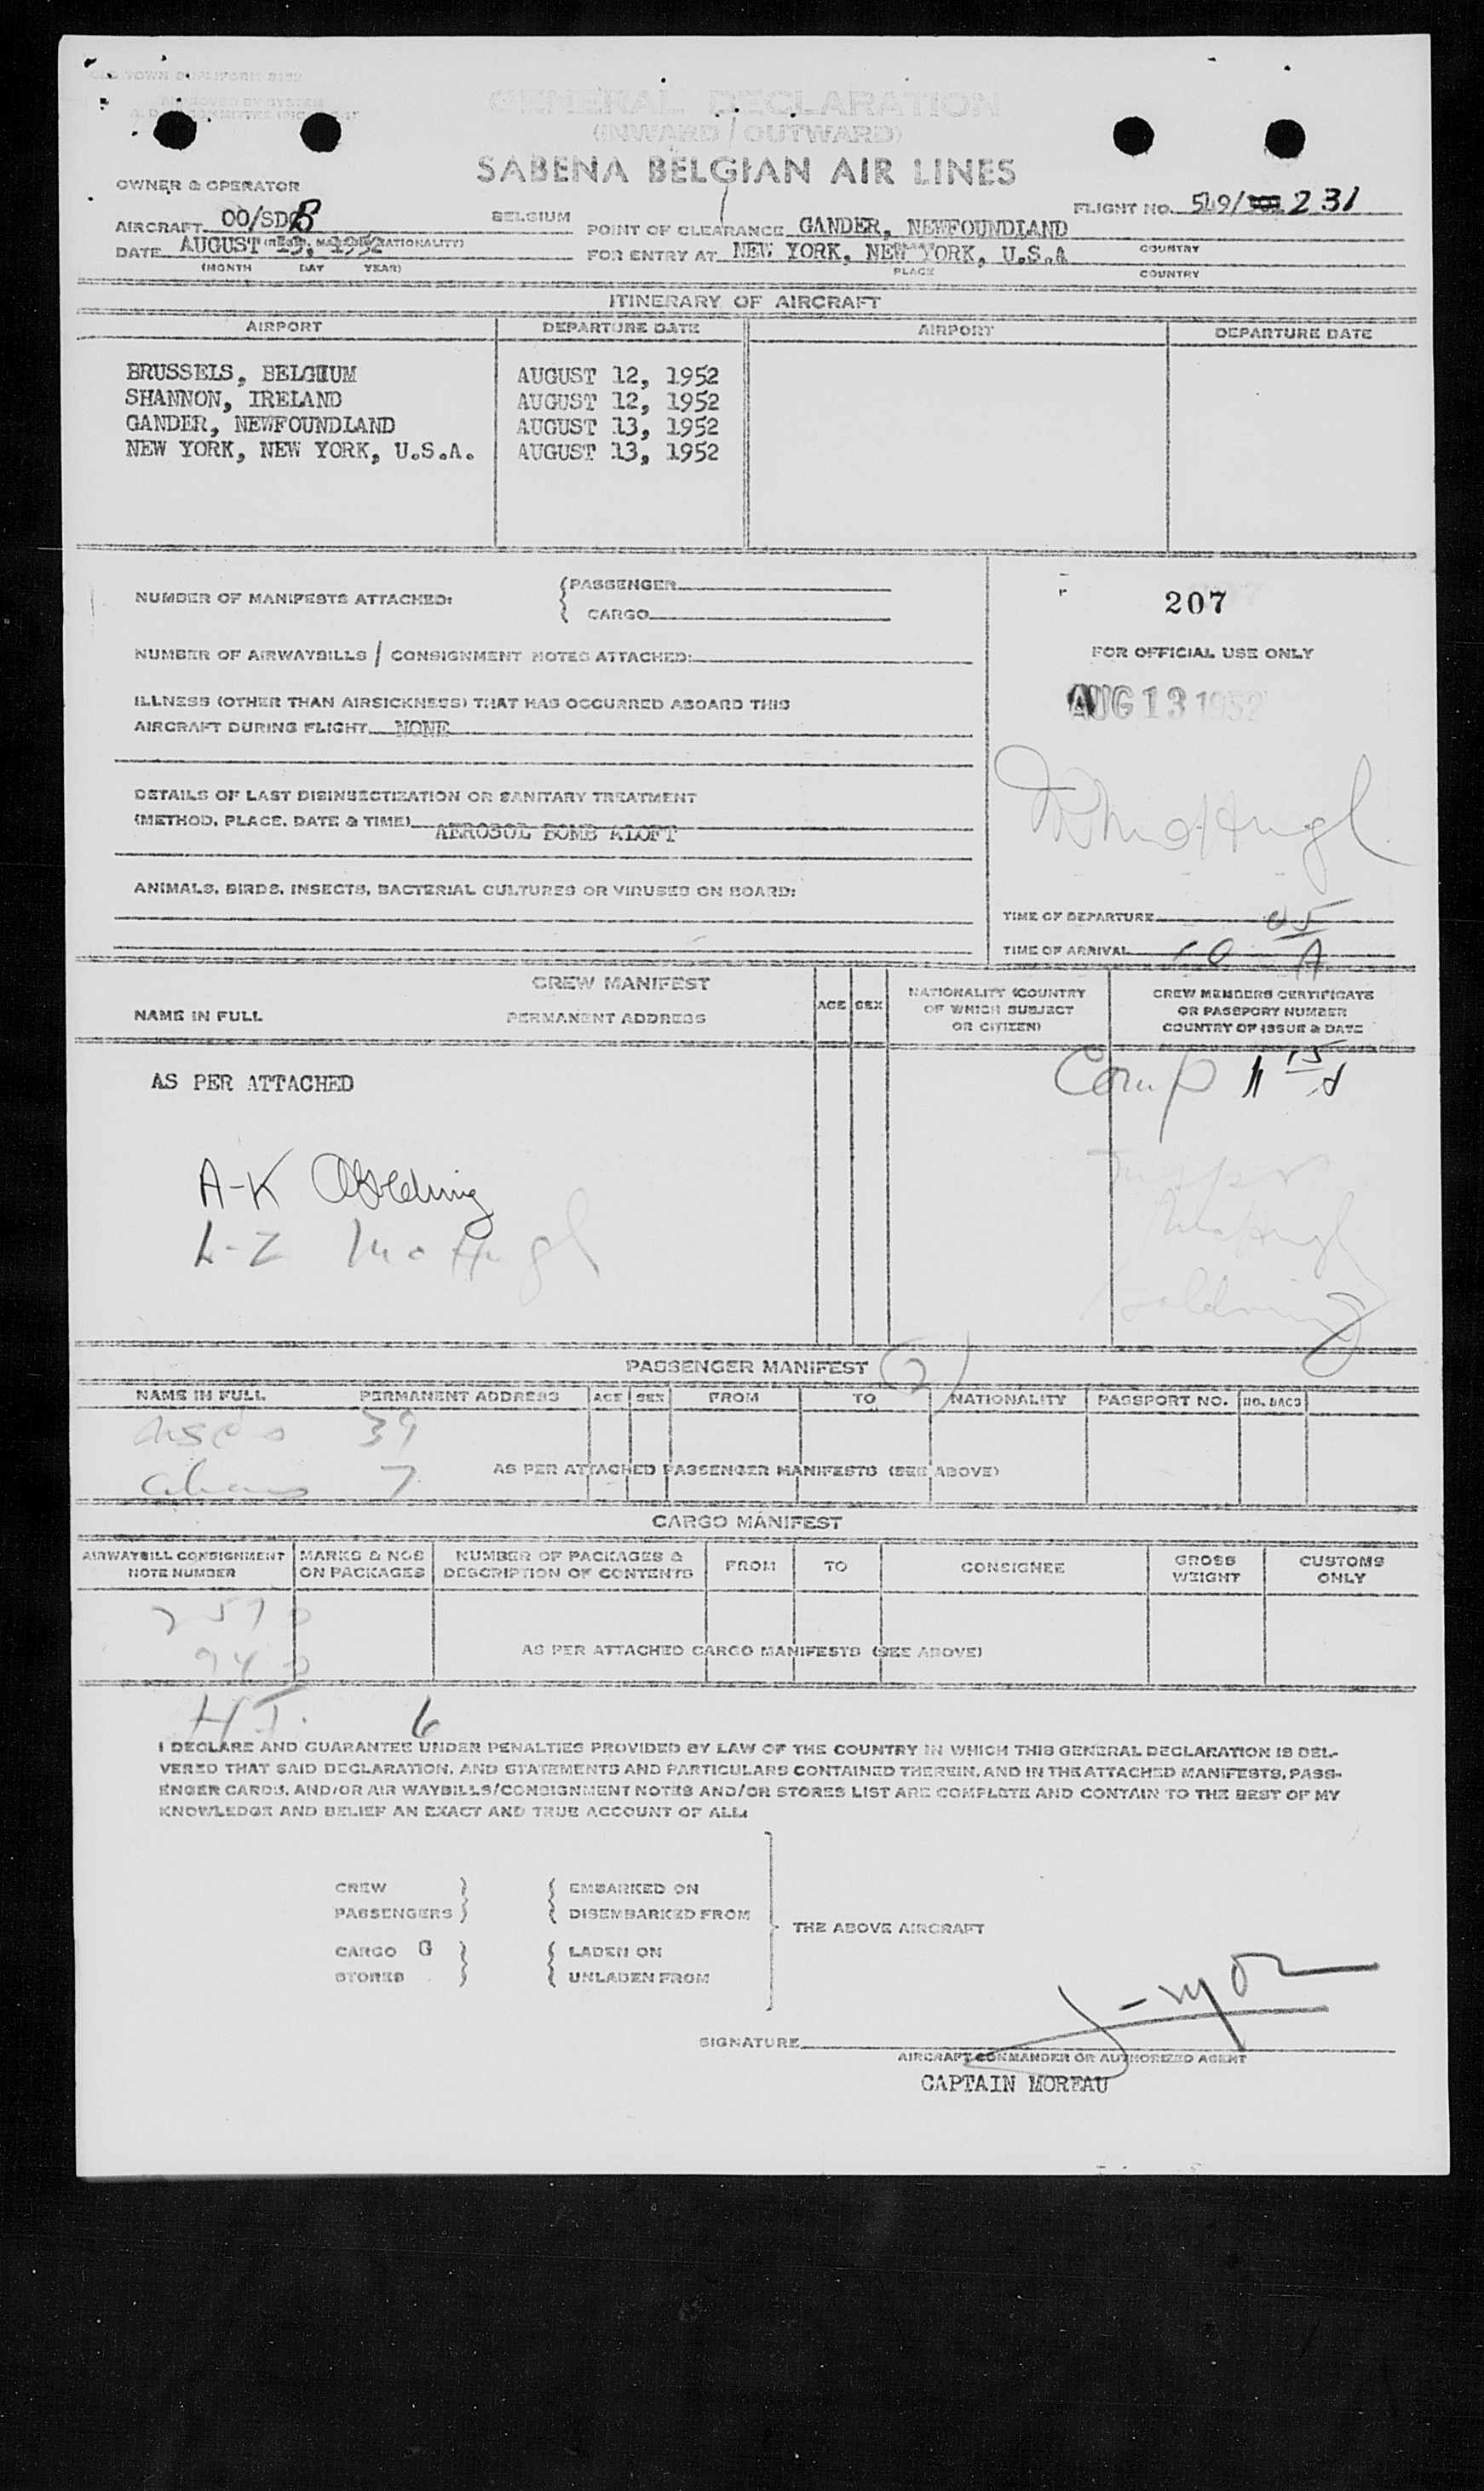 GENERAL DECLARATION
(INWARD / OUTWARD)
SABENA BELGIAN AIR LINES
OWNER & OPERATOR
AIRCRAFT OO/SD BELGIUM
POINT OF CLEARANCE GANDER, NEWFOUNDLAND
FLIGHT NO. 549/ 231
COUNTRY
DATE AUGUST 13, 1952
FOR ENTRY AT NEW YORK, NEW YORK, U.S.A
(MONTH DAY YEAR)
PLACE
COUNTRY
ITINERARY OF AIRCRAFT
AIRPORT DEPARTURE DATE AIRPORT DEPARTURE DATE
BRUSSELS, BELGIUM AUGUST 12, 1952
SHANNON, IRELAND AUGUST 12, 1952
GANDER, NEWFOUNDLAND AUGUST 13, 1952
NEW YORK, NEW YORK, U.S.A. AUGUST 13, 1952
NUMBER OF MANIFESTS ATTACHED:
PASSENGER
CARGO
207
NUMBER OF AIRWAYBILLS / CONSIGNMENT NOTES ATTACHED:
FOR OFFICIAL USE ONLY
ILLNESS (OTHER THAN AIRSICKNESS) THAT HAS OCCURRED ABOARD THIS
AIRCRAFT DURING FLIGHT NONE
AUG 13 1952
DETAILS OF LAST DISINSECTIZATION OR SANITARY TREATMENT
(METHOD, PLACE, DATE & TIME) AEROSOL BOMB ALOFT
ANIMALS, BIRDS, INSECTS, BACTERIAL CULTURES OR VIRUSES ON BOARD:
TIME OF DEPARTURE
TIME OF ARRIVAL
CREW MANIFEST
NAME IN FULL PERMANENT ADDRESS AGE SEX
NATIONALITY (COUNTRY
OF WHICH SUBJECT
OR CITIZEN)
CREW MEMBERS CERTIFICATE
OR PASSPORT NUMBER
COUNTRY OF ISSUE & DATE
AS PER ATTACHED
Comp
A-K Golding
L-Z McHugh
PASSENGER MANIFEST
NAME IN FULL PERMANENT ADDRESS AGE SEX FROM TO NATIONALITY PASSPORT NO. NO. BAGS
39
7
AS PER ATTACHED PASSENGER MANIFESTS (SEE ABOVE)
CARGO MANIFEST
AIRWAYBILL CONSIGNMENT
NOTE NUMBER
MARKS & NOS
ON PACKAGES
NUMBER OF PACKAGES &
DESCRIPTION OF CONTENTS
FROM TO CONSIGNEE
GROSS
WEIGHT
CUSTOMS
ONLY
AS PER ATTACHED CARGO MANIFESTS (SEE ABOVE)
6
I DECLARE AND GUARANTEE UNDER PENALTIES PROVIDED BY LAW OF THE COUNTRY IN WHICH THIS GENERAL DECLARATION IS DEL-
VERED THAT SAID DECLARATION, AND STATEMENTS AND PARTICULARS CONTAINED THEREIN, AND IN THE ATTACHED MANIFESTS, PASS-
ENGER CARDS, AND/OR AIR WAYBILLS/CONSIGNMENT NOTES AND/OR STORES LIST ARE COMPLETE AND CONTAIN TO THE BEST OF MY
KNOWLEDGE AND BELIEF AN EXACT AND TRUE ACCOUNT OF ALL:
CREW
PASSENGERS
EMBARKED ON
DISEMBARKED FROM
THE ABOVE AIRCRAFT
CARGO G
STORES
LADEN ON
UNLADEN FROM
SIGNATURE
AIRCRAFT COMMANDER OR AUTHORIZED AGENT
CAPTAIN MOREAU